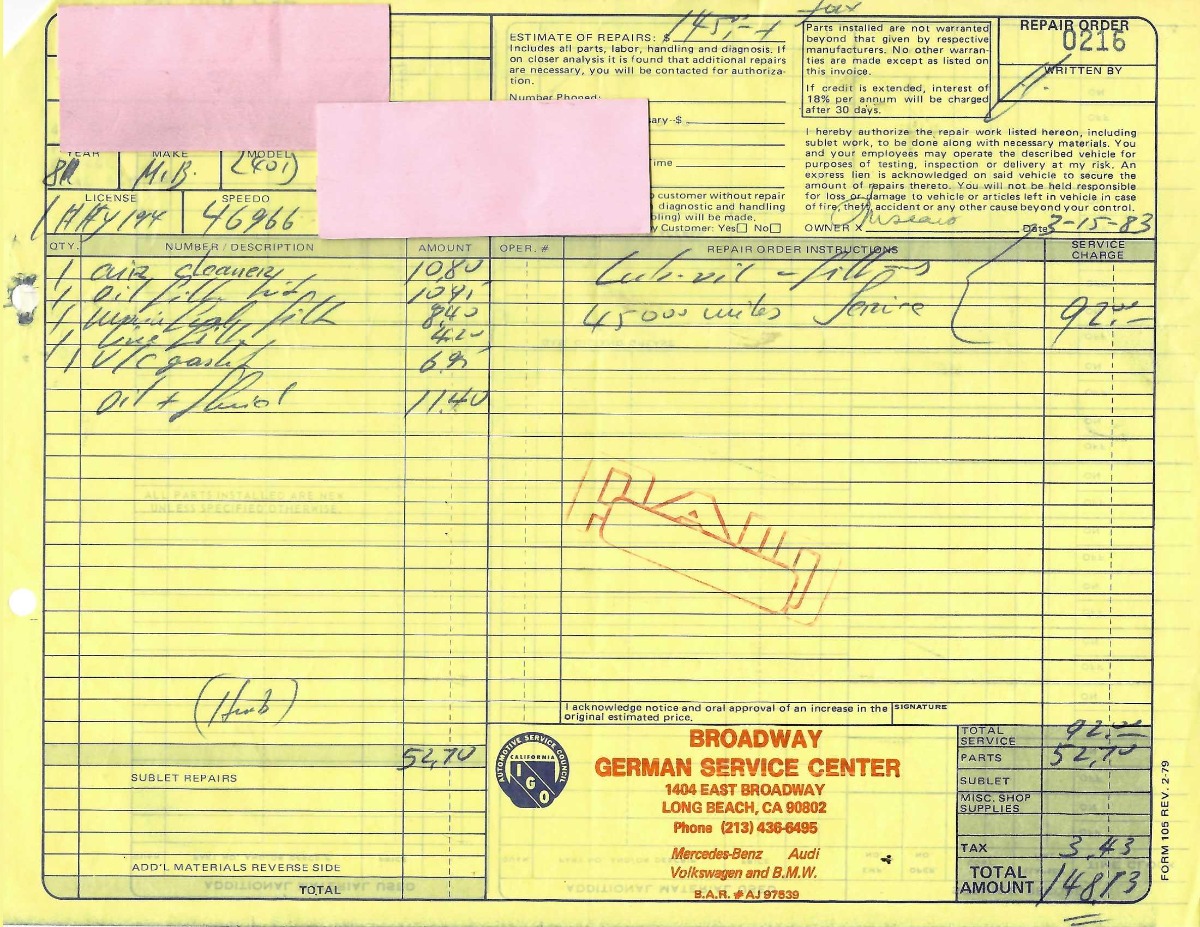 145.— + tax
ESTIMATE OF REPAIRS: $
Includes all parts, labor, handling and diagnosis. If
on closer analysis it is found that additional repairs
are necessary, you will be contacted for authoriza-
tion.
Number Phoned:
sary--$
ime
customer without repair
diagnostic and handling
bling) will be made.
y Customer: Yes No
Parts installed are not warranted
beyond that given by respective
manufacturers. No other warran-
ties are made except as listed on
this invoice.
If credit is extended, interest of
18% per annum will be charged
after 30 days.
REPAIR ORDER
0216
WRITTEN BY
I hereby authorize the repair work listed hereon, including
sublet work, to be done along with necessary materials. You
and your employees may operate the described vehicle for
purposes of testing, inspection or delivery at my risk. An
express lien is acknowledged on said vehicle to secure the
amount of repairs thereto. You will not be held responsible
for loss or damage to vehicle or articles left in vehicle in case
of fire, theft, accident or any other cause beyond your control.
OWNER X Date 3-15-83
YEAR MAKE MODEL
M.B.
LICENSE SPEEDO
46966
QTY. NUMBER / DESCRIPTION AMOUNT OPER. # REPAIR ORDER INSTRUCTIONS SERVICE CHARGE
1 air cleaner 10,80
1 oil filter 10,95
1 main fuel filt 8,40
1 line filt 4.20
1 V/C gasket 6.95
oil + fluid 11.40
Lub-oil - filters
45000 miles Service 92.—
ALL PARTS INSTALLED ARE NEW
UNLESS SPECIFIED OTHERWISE.
PAID
(Herb)
I acknowledge notice and oral approval of an increase in the
original estimated price.
SIGNATURE
52,70
SUBLET REPAIRS
ADD'L MATERIALS REVERSE SIDE
TOTAL
AUTOMOTIVE SERVICE COUNCIL
CALIFORNIA
IGO
BROADWAY
GERMAN SERVICE CENTER
1404 EAST BROADWAY
LONG BEACH, CA 90802
Phone (213) 436-6495
Mercedes-Benz Audi
Volkswagen and B.M.W.
B.A.R. # AJ 97539
TOTAL SERVICE 92.—
PARTS 52,70
SUBLET
MISC. SHOP SUPPLIES
TAX 3,43
TOTAL AMOUNT 148,13
FORM 105 REV. 2-79